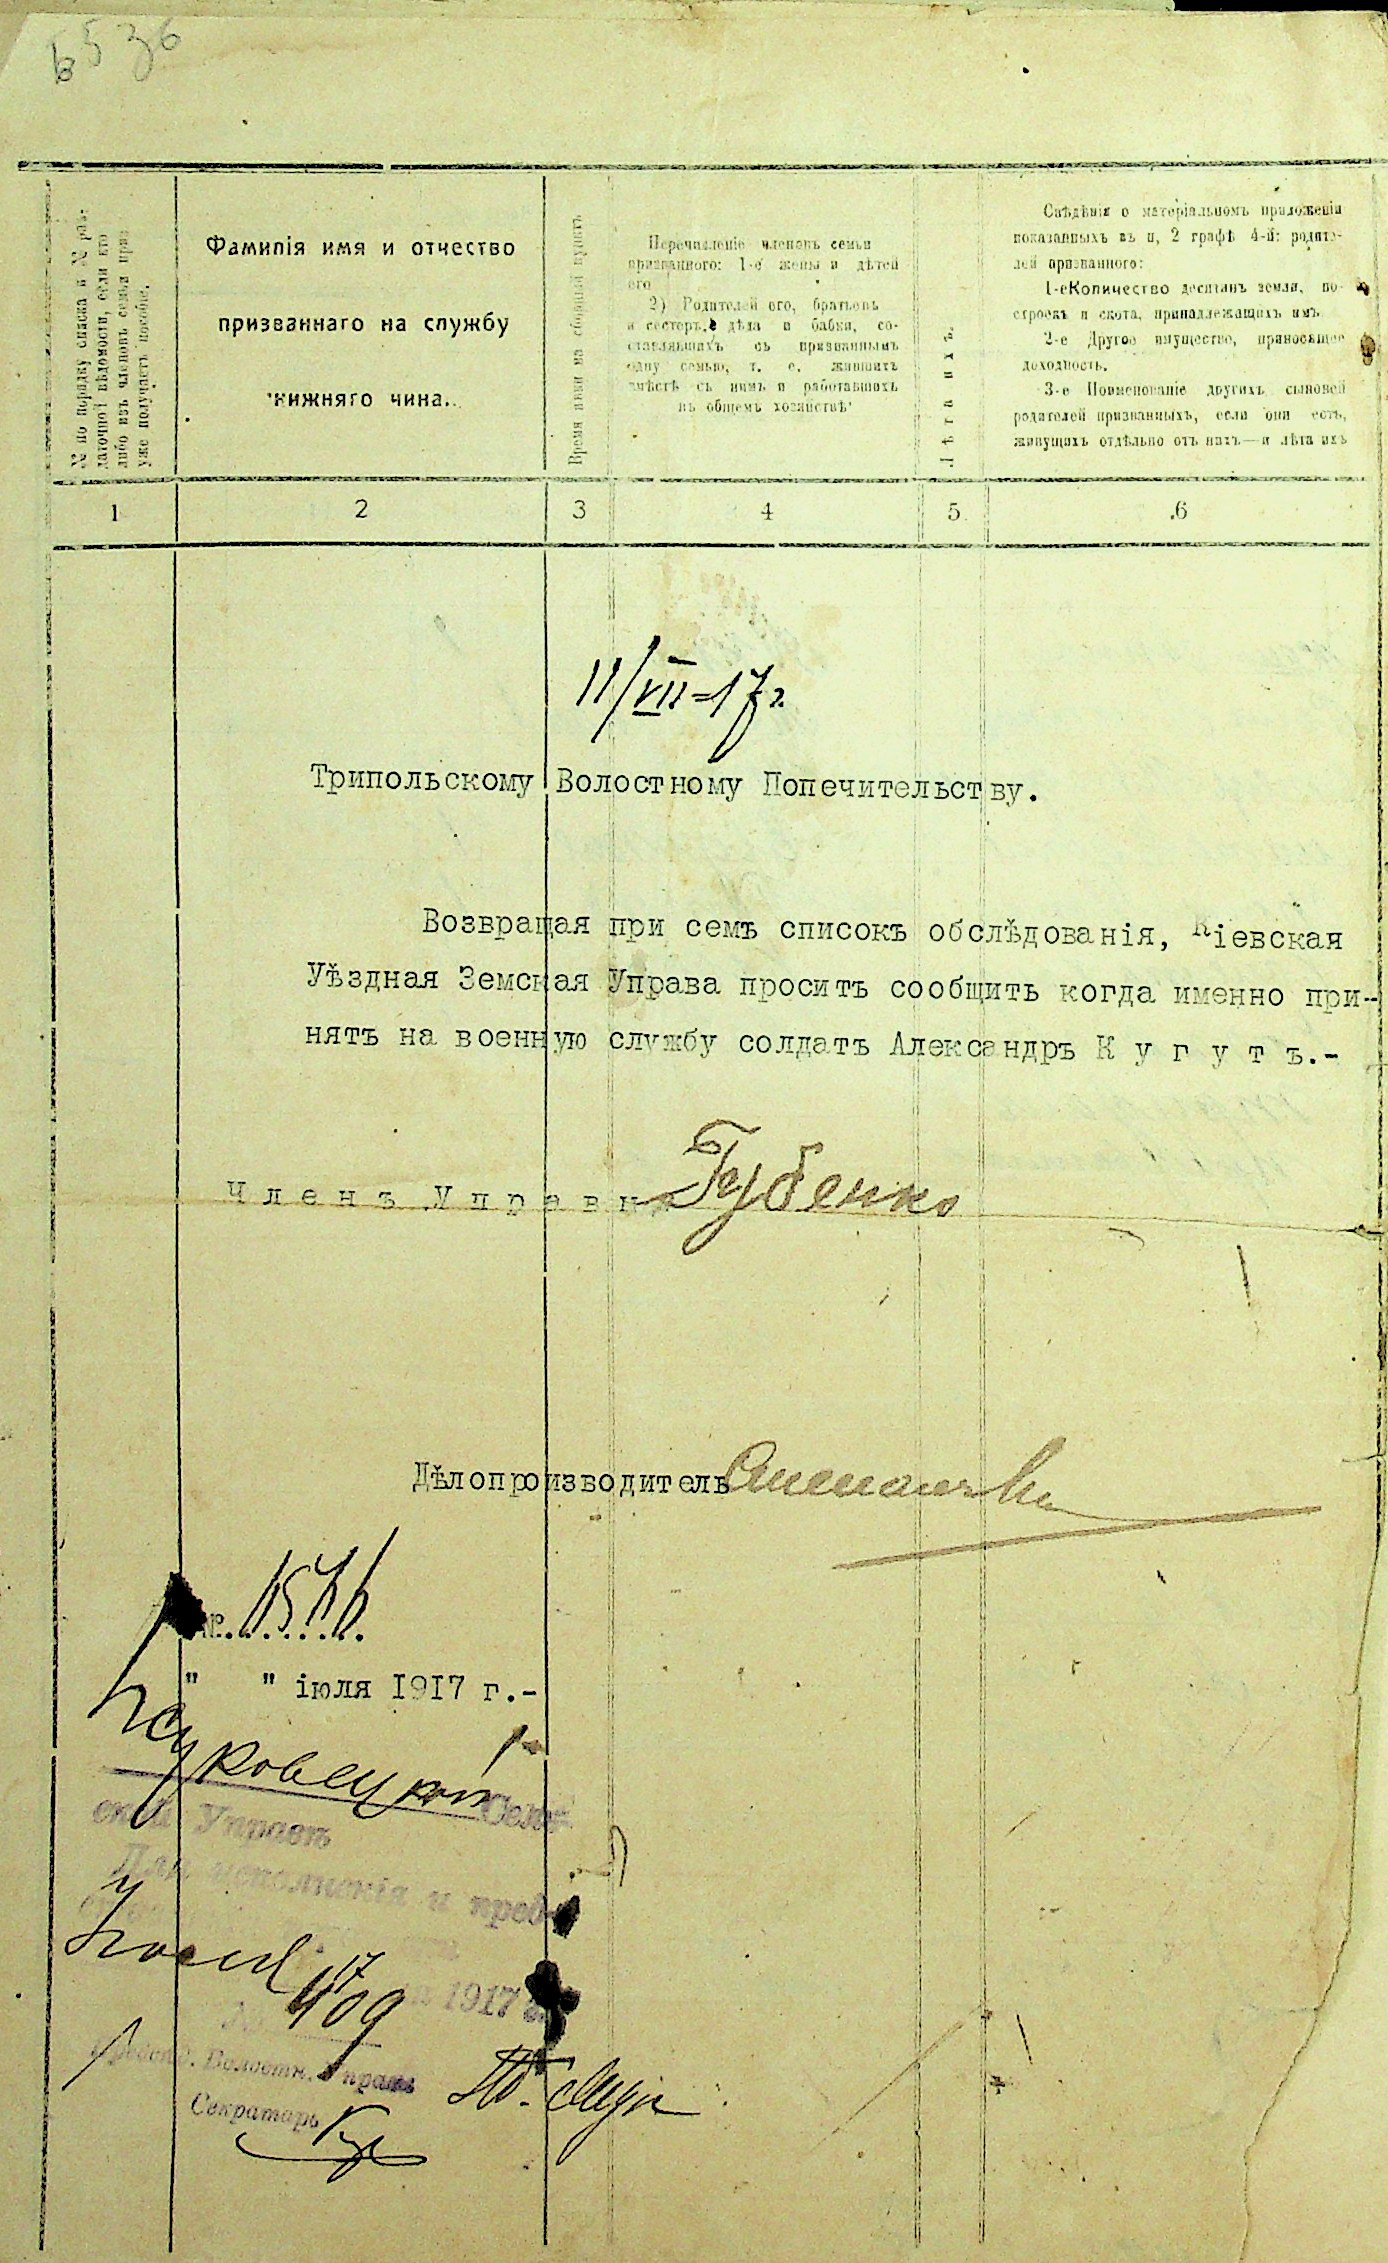 6536
№ по порядку списка и № раз-
даточной вѣдомости, если кто
либо изъ членовъ семьи приз
уже получаетъ пособіе.
Фамилія имя и отчество
призваннаго на службу
нижняго чина.
Время явки на сборный пунктъ
Перечисленіе членовъ семьи
призваннаго: 1-е жены и дѣтей
его
2) Родителей его, братьевъ
и сестеръ, дѣда и бабки, со-
ставлявшихъ съ призваннымъ
одну семью, т. е. жившихъ
вмѣстѣ съ нимъ и работавшихъ
въ общемъ хозяйствѣ
Лѣта ихъ.
Свѣдѣнія о матеріальномъ приложеніи
показанныхъ въ п, 2 графѣ 4-й: родите-
лей призванного:
1-еКоличество десятинъ земли, по-
строекъ и скота, принадлежащихъ имъ
2-е Другое имущество, приносящее
доходность.
3-е Поименованіе другихъ сыновей
родителей призванныхъ, если они есть,
живущихъ отдѣльно отъ нихъ—и лѣта ихъ
1 2 3 4 5 6
11/VII-17г.
Трипольскому Волостному Попечительству.
Возвращая при семъ списокъ обслѣдованія, Кіевская
Уѣздная Земская Управа проситъ сообщить когда именно при-
нятъ на военную службу солдатъ Александръ К у г у т ъ.-
Членъ Управы Губенко
Дѣлопроизводитель
№
" " іюля 1917 г.-
Сель-
ской Управѣ
Для исполненія и пред-
17
1917 г.
№ 1109
Предсѣд. Волостн. Управы
Секретарь